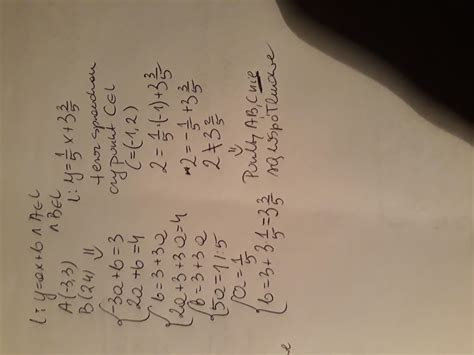 l: y=ax+b ∧ A∈l
∧ B∈l
A(-3,3)
B(2,4) ⇓
{-3a+b=3
2a+b=4
{b=3+3a
2a+3+3a=4
{b=3+3a
5a=1 |:5
{a=1/5
b=3+3 1/5=3 3/5
l: y=1/5x+3 3/5
teraz sprawdzam
czy punkt C∈l
C=(-1,2)
2=1/5·(-1)+3 3/5
2=-1/5+3 3/5
2≠3 2/5
⇓
Punkty A,B,C nie
są współliniowe